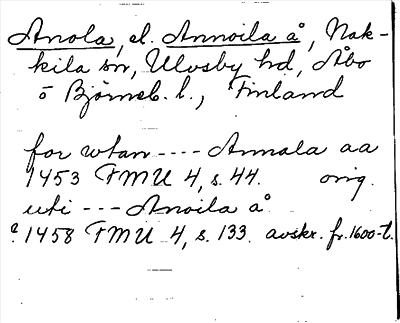 Anola, el. Annoila å, Nak-
kila sn, Ulvsby hd, Åbo
o Björneb. l., Finland
for wtan ---- Annala aa
1453 FMU 4, s. 44. orig.
uti --- Anoila å
? 1458 FMU 4, s. 133. avskr. fr. 1600-t.